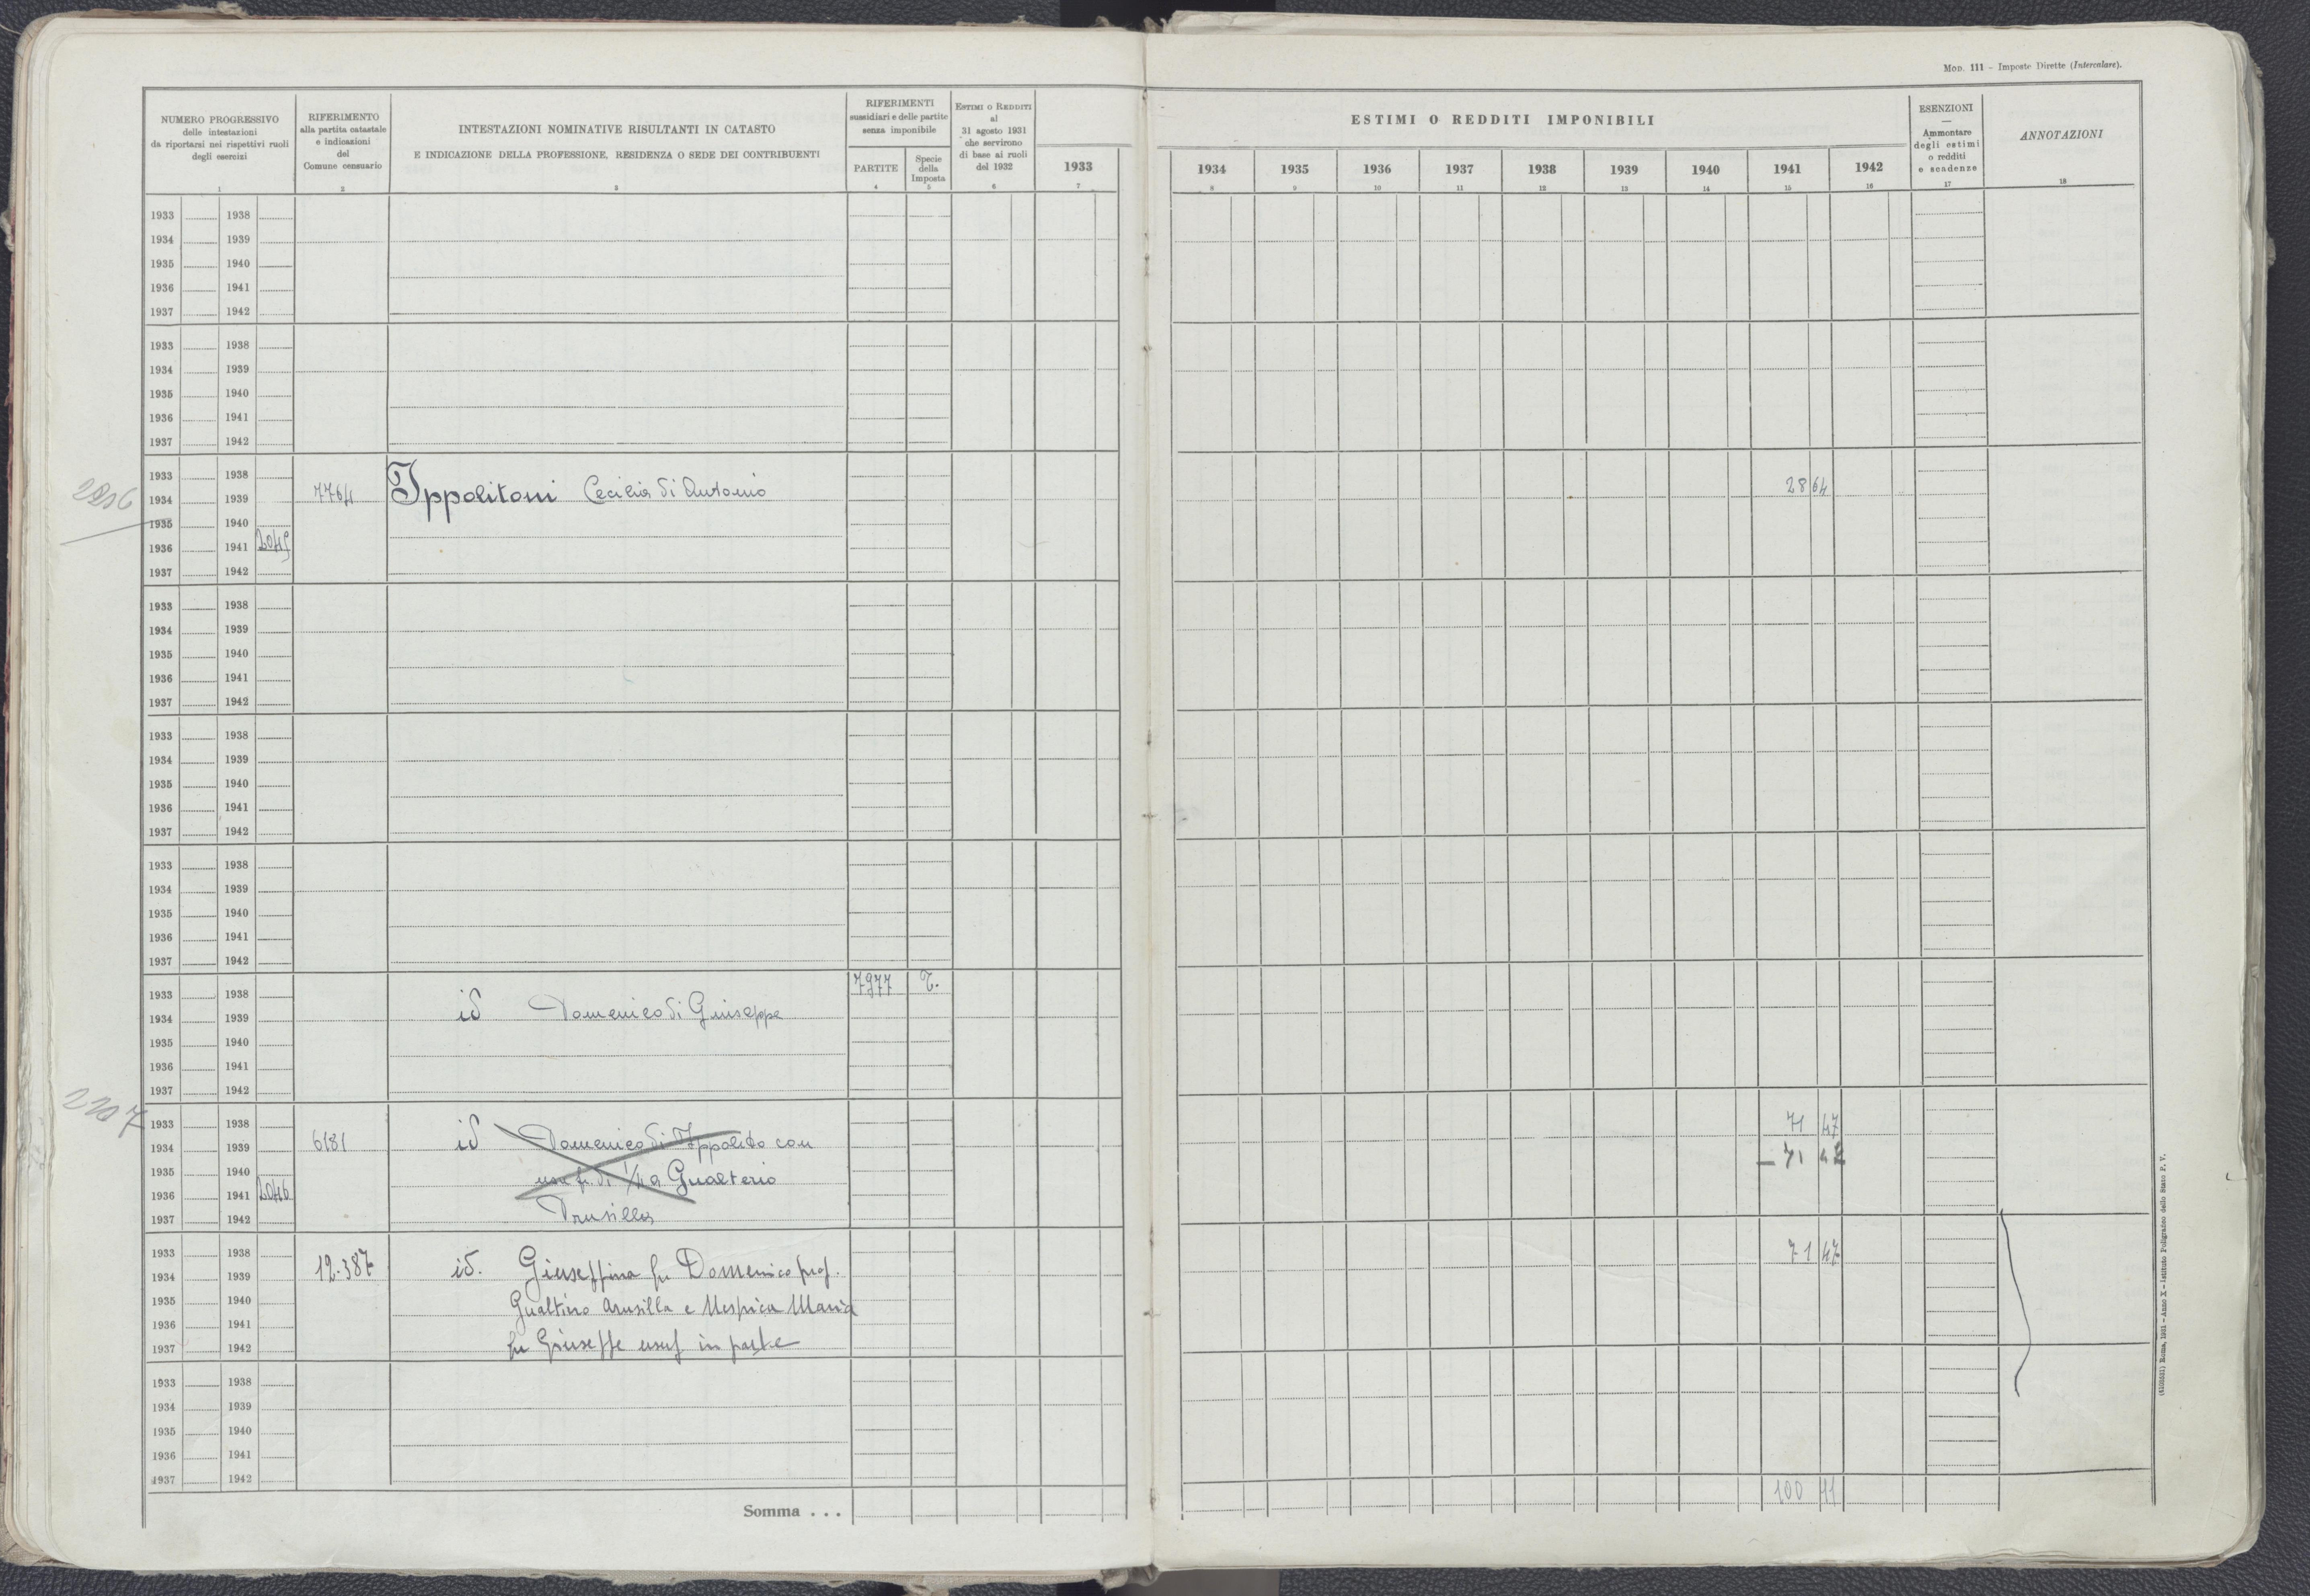 Mod. 111 – Imposte Dirette (Intercalare).
NUMERO PROGRESSIVO
delle intestazioni
da riportarsi nei rispettivi ruoli
degli esercizi
1
RIFERIMENTO
alla partita catastale
e indicazioni
del
Comune censuario
2
INTESTAZIONI NOMINATIVE RISULTANTI IN CATASTO
E INDICAZIONE DELLA PROFESSIONE, RESIDENZA O SEDE DEI CONTRIBUENTI
3
RIFERIMENTI
sussidiari e delle partite
senza imponibile
PARTITE
4
Specie
della
Imposta
5
ESTIMI O REDDITI
al
31 agosto 1931
che servirono
di base ai ruoli
del 1932
6
1933
7
ESTIMI O REDDITI IMPONIBILI
1934 1935 1936 1937 1938 1939 1940 1941 1942
8 9 10 11 12 13 14 15 16
ESENZIONI
—
Ammontare
degli estimi
o redditi
e scadenze
17
ANNOTAZIONI
18
1933 1938
1934 1939
1935 1940
1936 1941
1937 1942
1933 1938
1934 1939
1935 1940
1936 1941
1937 1942
1933 1938
1934 1939 7764 Ippolitoni Cecilia di Antonio 28 64
1935 1940
1936 1941 2045
1937 1942
1933 1938
1934 1939
1935 1940
1936 1941
1937 1942
1933 1938
1934 1939
1935 1940
1936 1941
1937 1942
1933 1938
1934 1939
1935 1940
1936 1941
1937 1942
7977 T.
1933 1938
1934 1939 id Domenico di Giuseppe
1935 1940
1936 1941
1937 1942
2207
1933 1938 71 47
1934 1939 6181 id Domenico di Ippolito con
1935 1940 – 71 47
1936 1941 2046 usufr. di 1/4 a Gualterio
1937 1942 Drusilla
1933 1938 71 47
1934 1939 12.387 id. Giuseppina fu Domenico prop.
1935 1940 Gualtiero Drusilla e Maria
1936 1941
1937 1942 fu Giuseppe usuf in parte
1933 1938
1934 1939
1935 1940
1936 1941
1937 1942
Somma . . . 100 11
(4103531) Roma, 1931 – Anno X – Istituto Poligrafico dello Stato P. V.